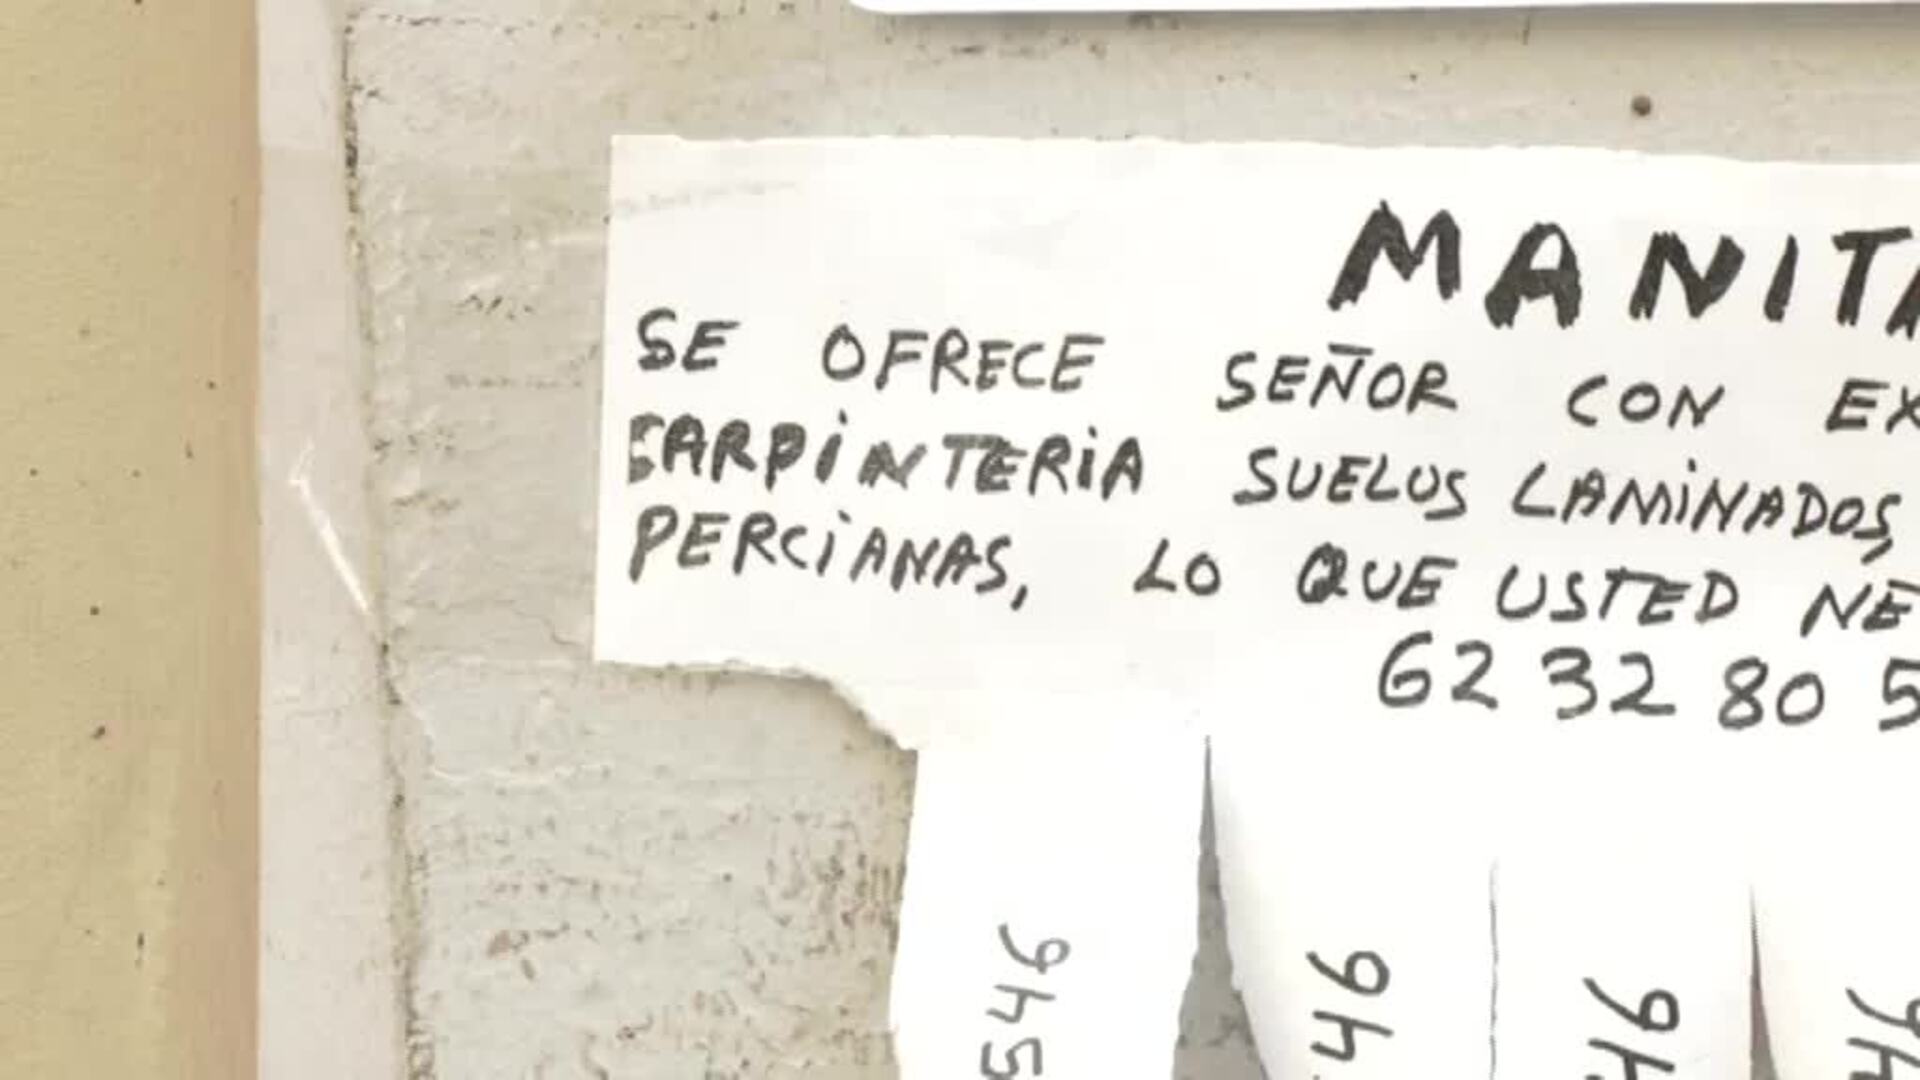 MANITA
SE OFRECE SEÑOR CON EX
CARPINTERIA SUELOS LAMINADOS,
PERCIANAS, LO QUE USTED NE
62 32 80 5
546
46
46
46